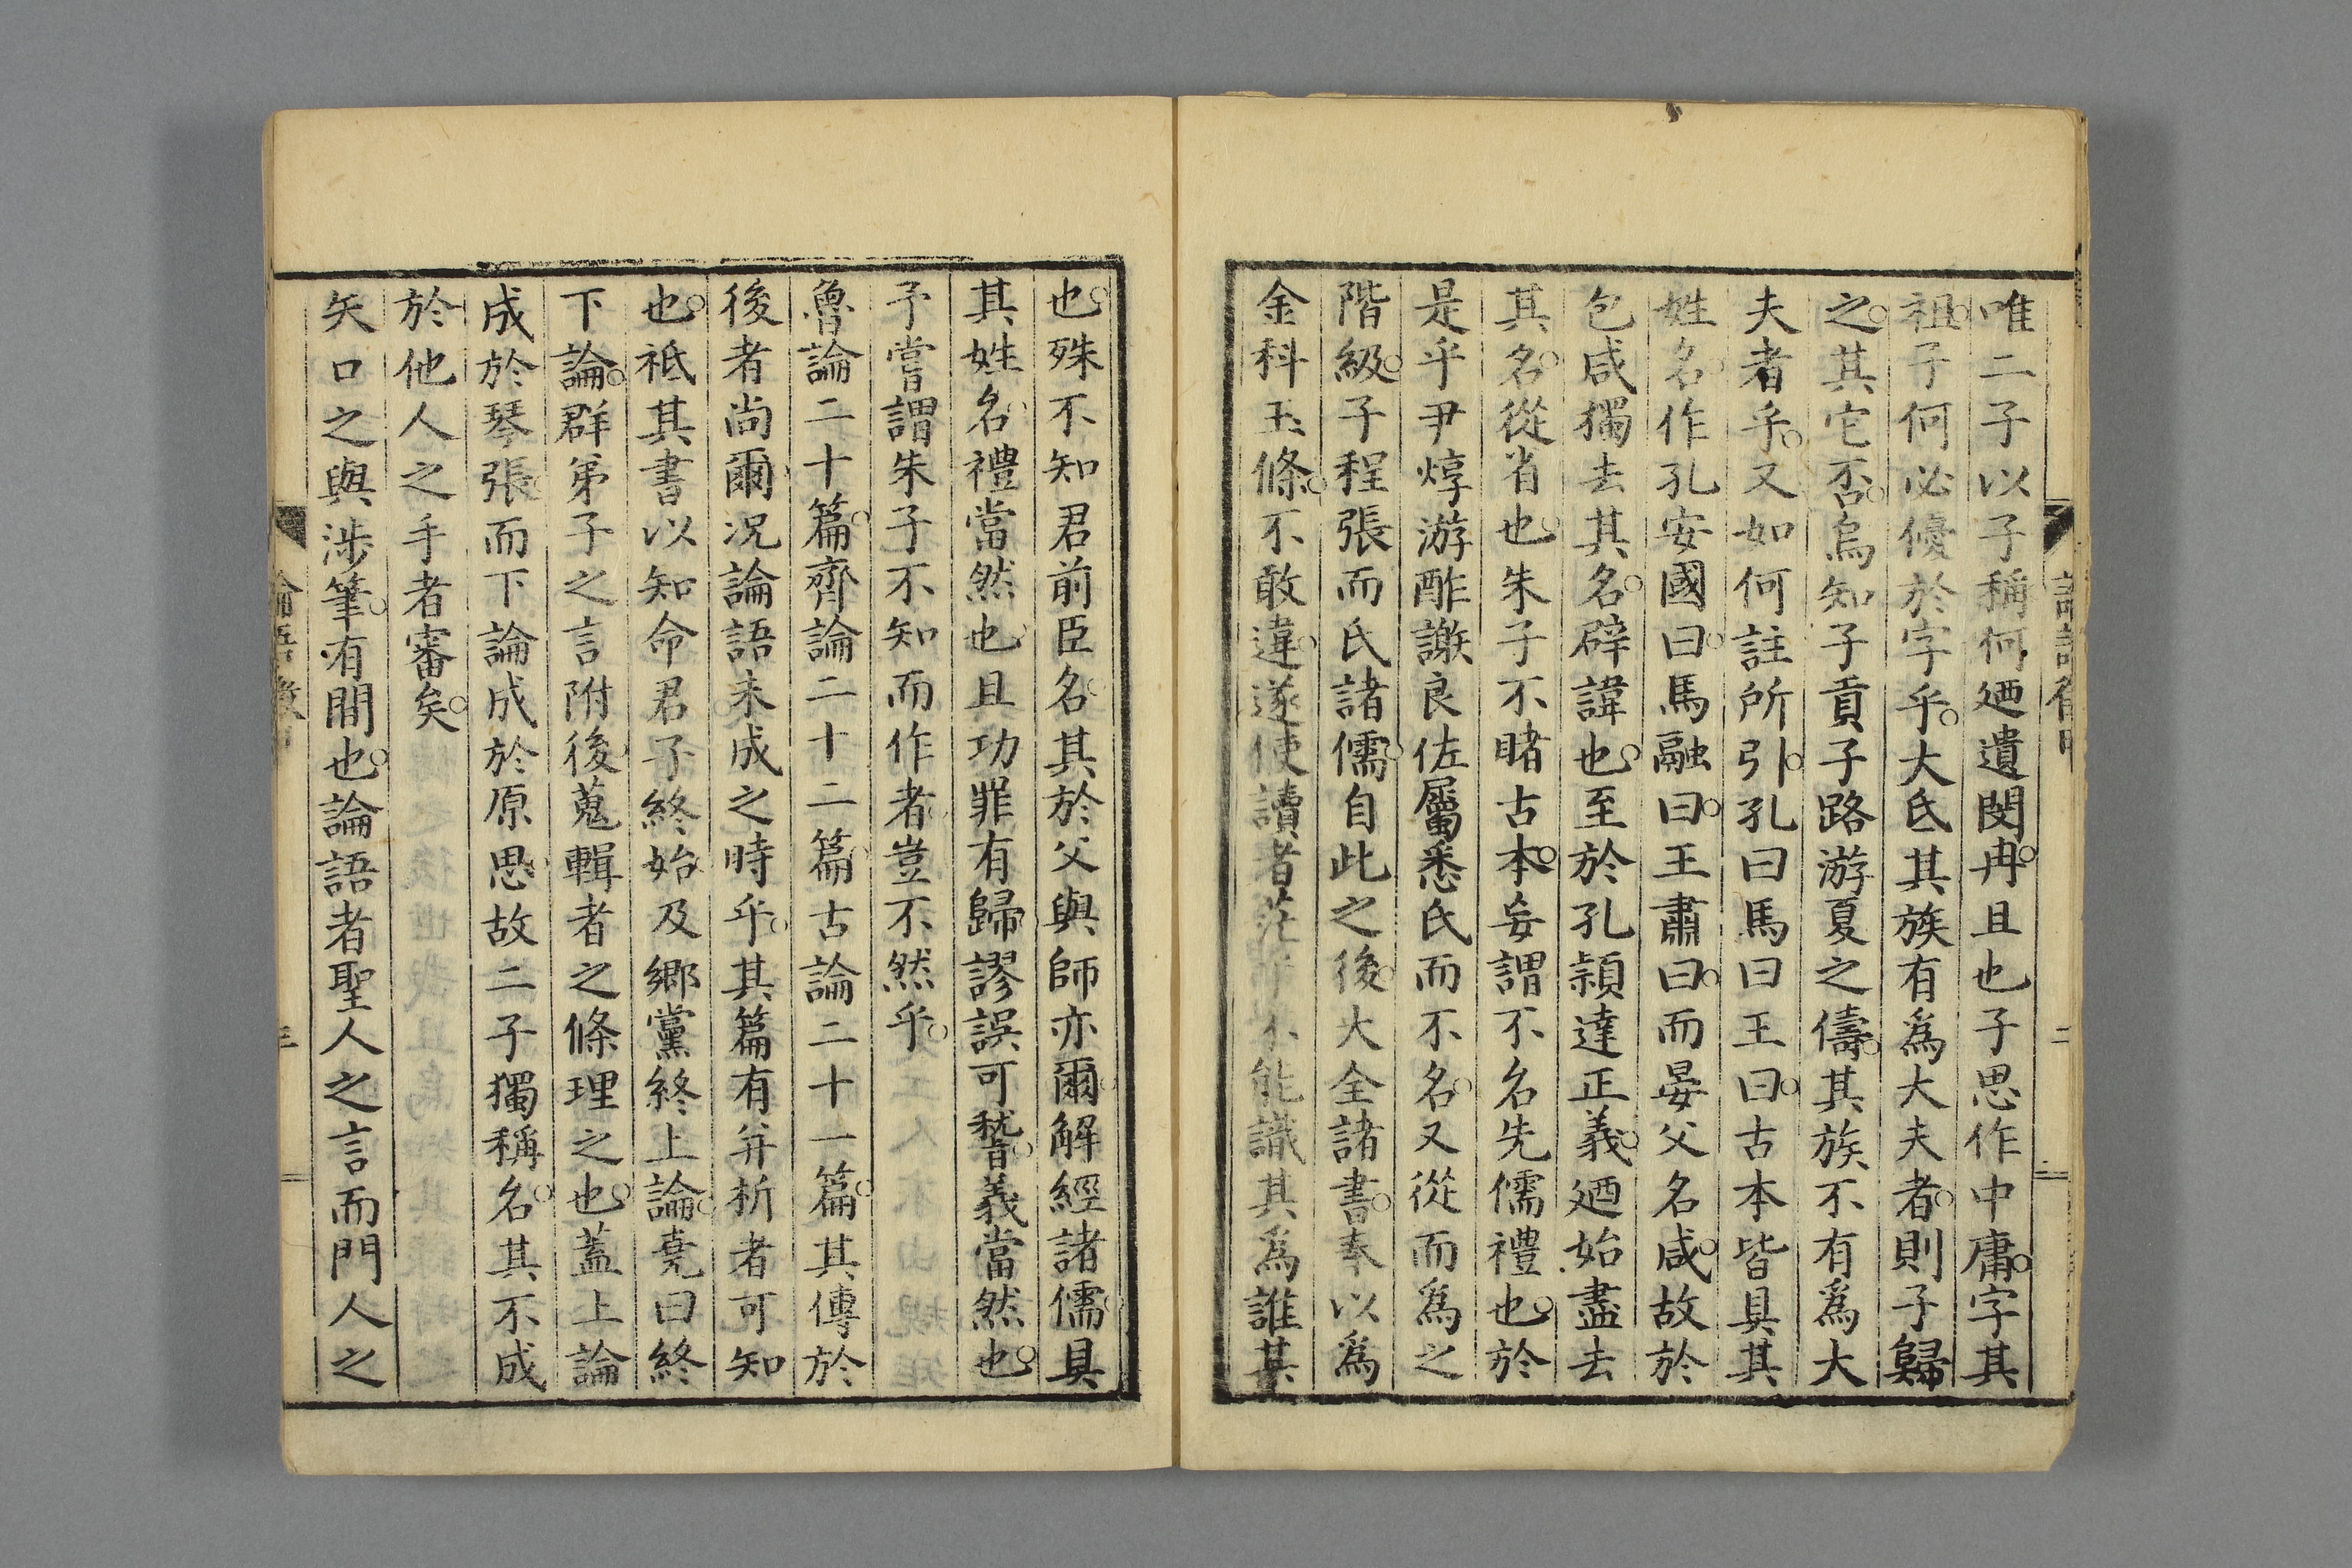 唯二子以子稱何廼遺閔冉且也子思作中庸字其
祖子何必優於字乎大氐其族有爲大夫者則子歸
之其它否烏知子貢子路游夏之儔其族不有爲大
夫者乎又如何註所引孔曰馬曰王曰古本皆具其
姓名作孔安國曰馬融曰王肅曰而晏父名咸故於
包咸獨去其名辟諱也至於孔頴達正義廼始盡去
其名從省也朱子不睹古本妄謂不名先儒禮也於
是乎尹焞游酢謝良佐屬悉氏而不名又從而爲之
階級子程張而氏諸儒自此之後大全諸書奉以爲
金科玉條不敢違遂使讀者茫不能識其爲誰某
也殊不知君前臣名其於父與師亦爾解經諸儒具
其姓名禮當然也且功罪有歸謬誤可稽義當然也
予嘗謂朱子不知而作者豈不然乎
魯論二十篇齊論二十二篇古論二十一篇其傳於
後者尚爾况論語未成之時乎其篇有并析者可知
也祗其書以知命君子終始及鄉黨終上論堯曰終
下論群弟子之言附後蒐輯者之條理之也蓋上論
成於琴張而下論成於原思故二子獨稱名其不成
於他人之手者審矣
矢口之與涉筆有間也論語者聖人之言而門人之